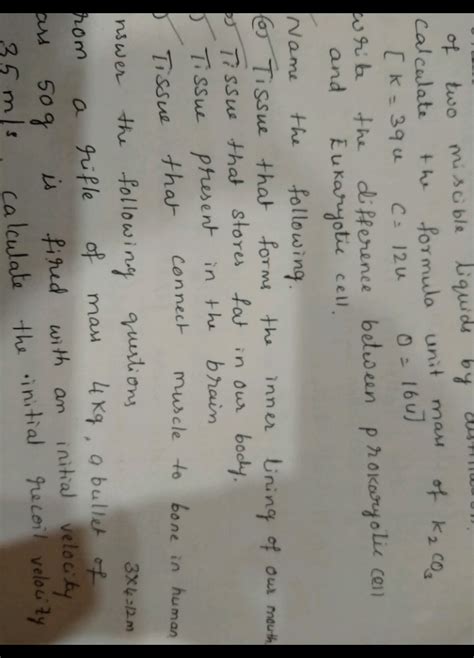 of two miscible liquids by
calculate the formula unit mass of K2CO3
[K = 39u C = 12u O = 16u]
write the difference between prokaryotic cell
and Eukaryotic cell.
Name the following.
(a) Tissue that forms the inner lining of our mouth
b) Tissue that stores fat in our body.
) Tissue present in the brain
) Tissue that connect muscle to bone in human
nswer the following questions 3x4=12m
rom a rifle of mass 4kg, a bullet of
ass 50g is fired with an initial velocity
35m/s. calculate the initial recoil velocity